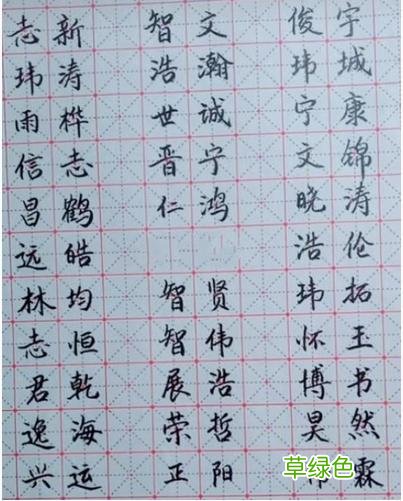 志新 智文 俊宇
玮涛 浩瀚 玮城
雨桦 世诚 宁康
信志 晋宁 文锦
昌鹤 仁鸿 晓涛
远皓 浩伦
林均 智贤 玮拓
志恒 智伟 怀玉
君乾 展浩 博书
逸海 荣哲 昊然
兴运 正阳 霖
草绿色